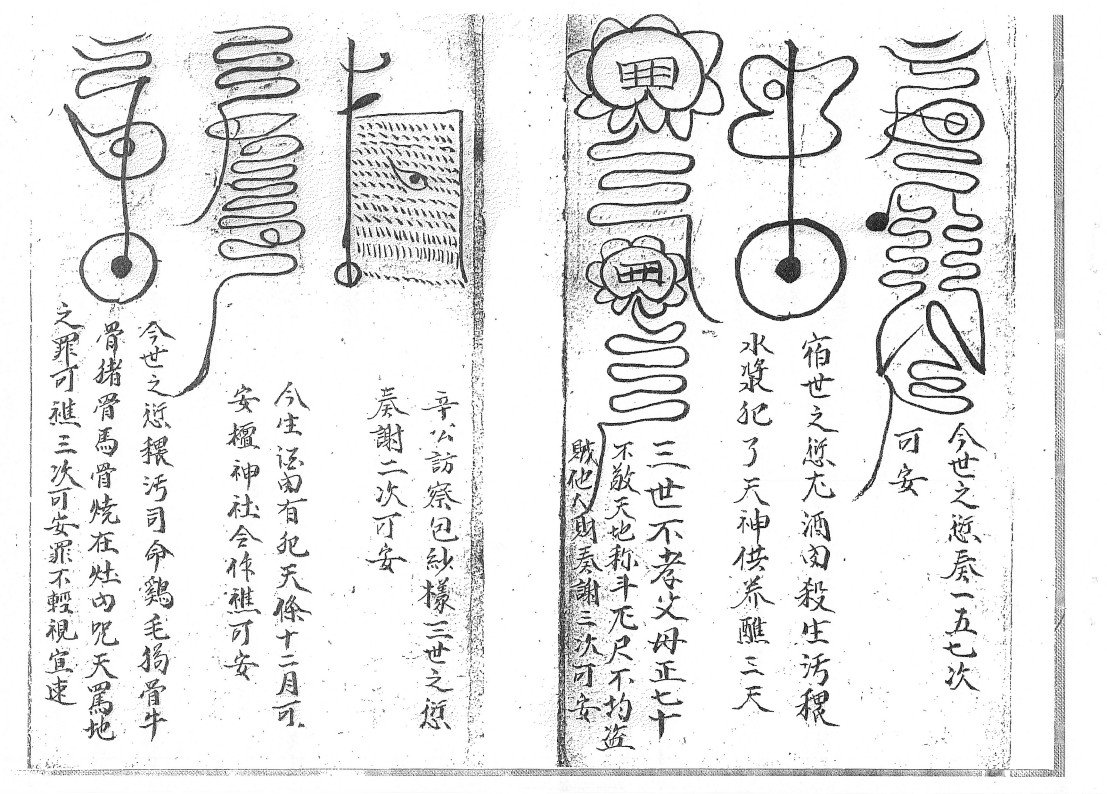 今世之愆奏一五七次
可安
宿世之愆尤酒肉殺生污穢
水漿犯了天神供养醮三天
三世不孝父母正七十
不敬天地称斗尺不均盗
賊他人財奏謝三次可安
辛公訪察包紗樣三世之愆
奏謝二次可安
今生酒肉有犯天條十二月可
安壇神社令作醮可安
今世之愆穢污司命鷄毛骨牛
骨猪骨馬骨燒在灶内咒天罵地
之罪可醮三次可安罪不輕視宜速